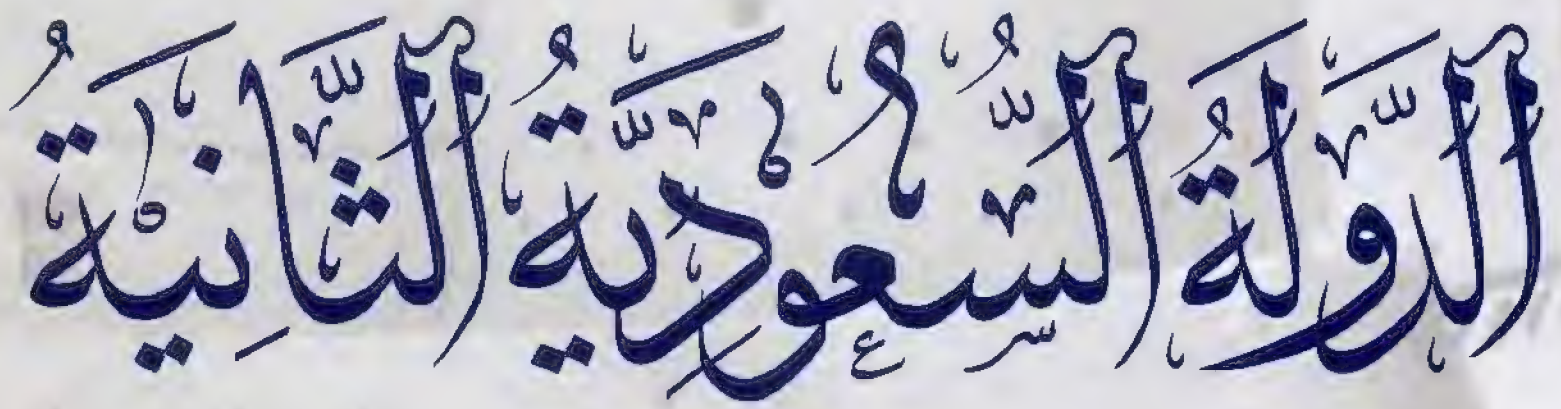 الدَّوْلَةُ السُّعُودِيَّةُ الثَّانِيَةُ